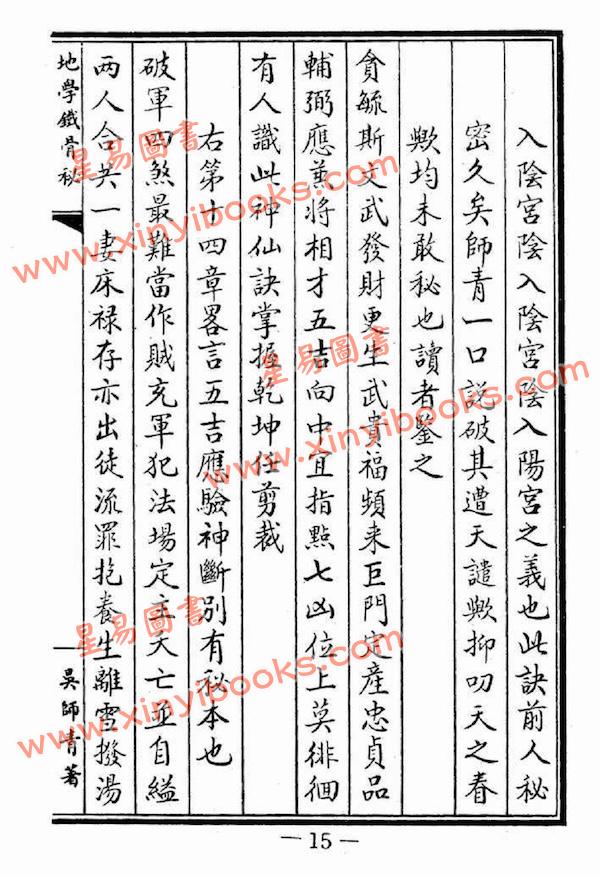 入陰宮陰入陰宮陰入陽宮之義也此訣前人秘
密久矣師青一口説破其遭天譴歟抑叨天之眷
歟均未敢秘也讀者鑒之
貪毓斯文武發財更生武貴福頻来巨門定產忠貞品
輔弼應兼將相才五吉向中宜指點七凶位上莫徘徊
有人識此神仙訣掌握乾坤任剪裁
右第十四章畧言五吉應驗神斷別有秘本也
破軍四煞最難當作賊充軍犯法場定主夭亡並自縊
两人合共一妻床禄存亦出徒流罪抱養生離雪撥湯
地學鐵骨秘
吳師青著
—15—
星易圖書
www.xinyibooks.com
星易圖書
www.xinyibooks.com
星易圖書
www.xinyibooks.com